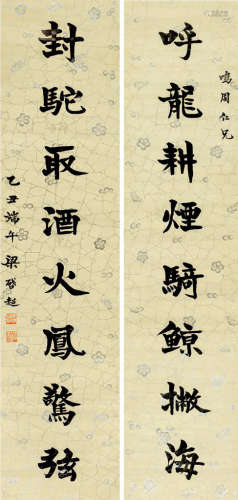 鳴周仁兄
呼龍耕煙騎鲸撇海
封駝取酒火鳳驚弦
乙丑端午梁啟超